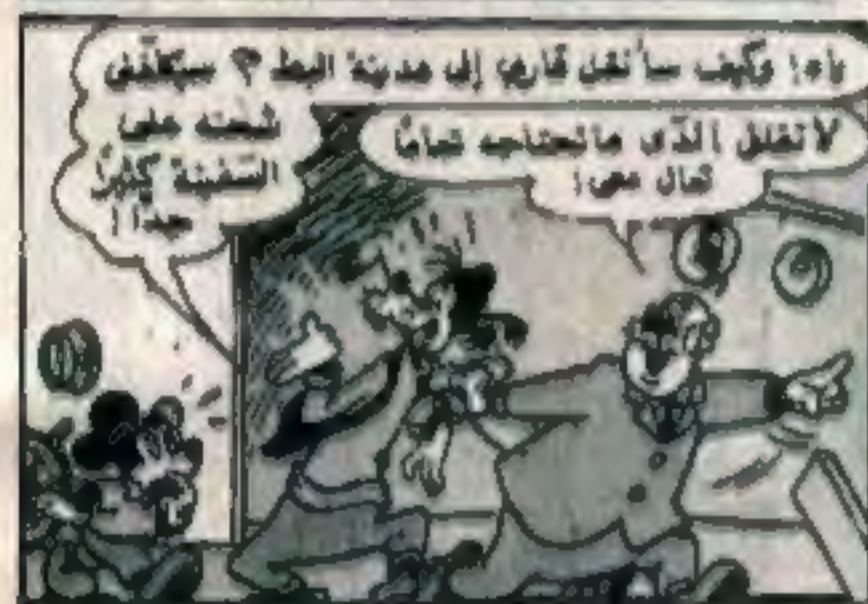 وكيف سأنقل قاربي إلى مدينة البط ؟ سيكلفني
شحنه على
السفينة كثيرًا
جدًا !
لا تقلق الذي ما تحتاجه تمامًا
تعال معي !